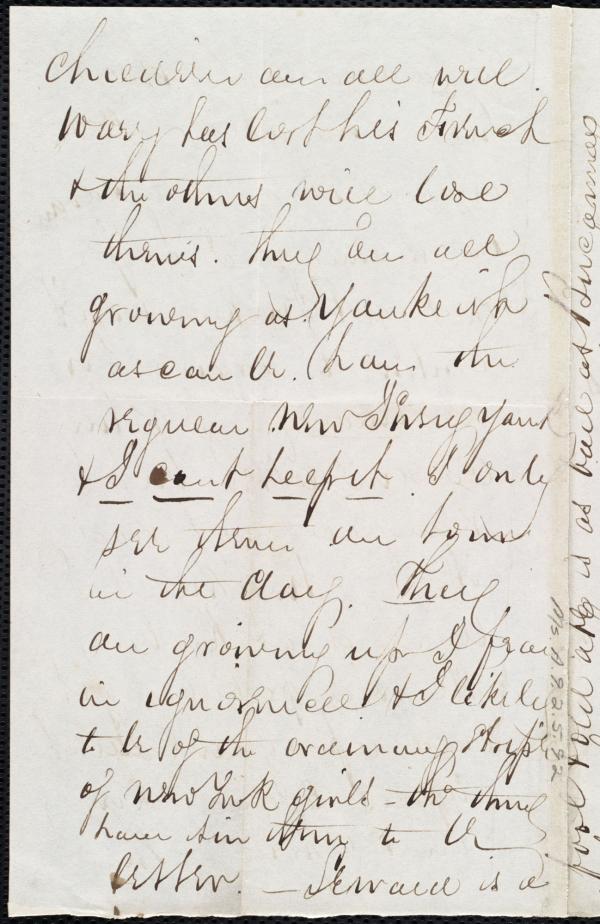 children are all well.
Harry has lost his French
& the others will lose
theirs. They are all
growing as Yankeeish
as can be. (have the
regular New Jersey yank
& I can't keep it. I only
see them an hour
in the day. They
are growing up I fear
in ignorance & likely
to be of the ordinary stripe
of New York girls - tho' they
have it in them to be
better. — Seward is a
fool & old Abe is as bad as Buccaneer
Ms. A. 9. 2. 5. 92